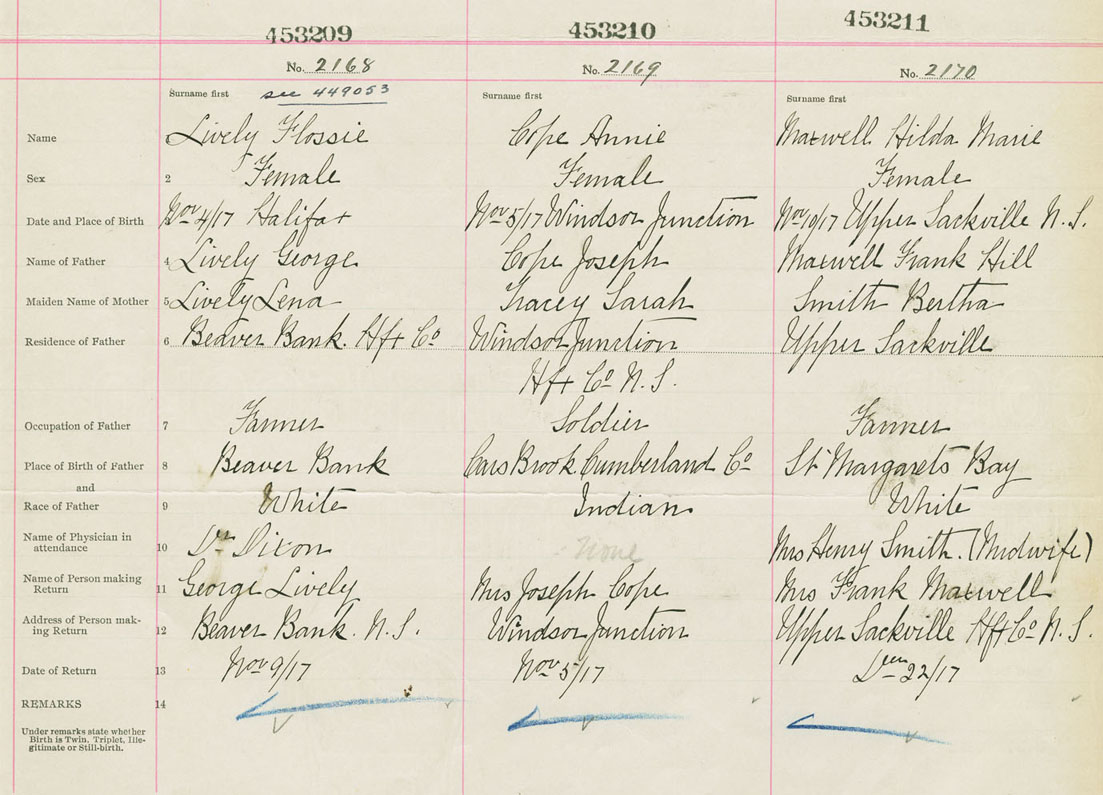 453209 453210 453211
No. 2168 No. 2169 No. 2170
Surname first see 449053 Surname first Surname first
Name Lively Flossie Cope Annie Maxwell Hilda Marie
Sex 2 Female Female Female
Date and Place of Birth Nov 4/17 Halifax Nov 5/17 Windsor Junction Nov 19/17 Upper Sackville N.S.
Name of Father 4 Lively George Cope Joseph Maxwell Frank Hill
Maiden Name of Mother 5 Lively Lena Tracey Sarah Smith Bertha
Residence of Father 6 Beaver Bank. Hfx Co Windsor Junction Upper Sackville
Hfx Co N.S.
Occupation of Father 7 Farmer Soldier Farmer
Place of Birth of Father 8 Beaver Bank Cars Brook Cumberland Co St Margarets Bay
and
Race of Father 9 White Indian White
Name of Physician in
attendance 10 Dr Dixon none Mrs Henry Smith. (Midwife)
Name of Person making
Return 11 George Lively Mrs Joseph Cope Mrs Frank Maxwell
Address of Person mak-
ing Return 12 Beaver Bank. N.S. Windsor Junction Upper Sackville Hfx Co N.S.
Date of Return 13 Nov 9/17 Nov 5/17 Dec 22/17
REMARKS 14
Under remarks state whether
Birth is Twin, Triplet, Ille-
gitimate or Still-birth.